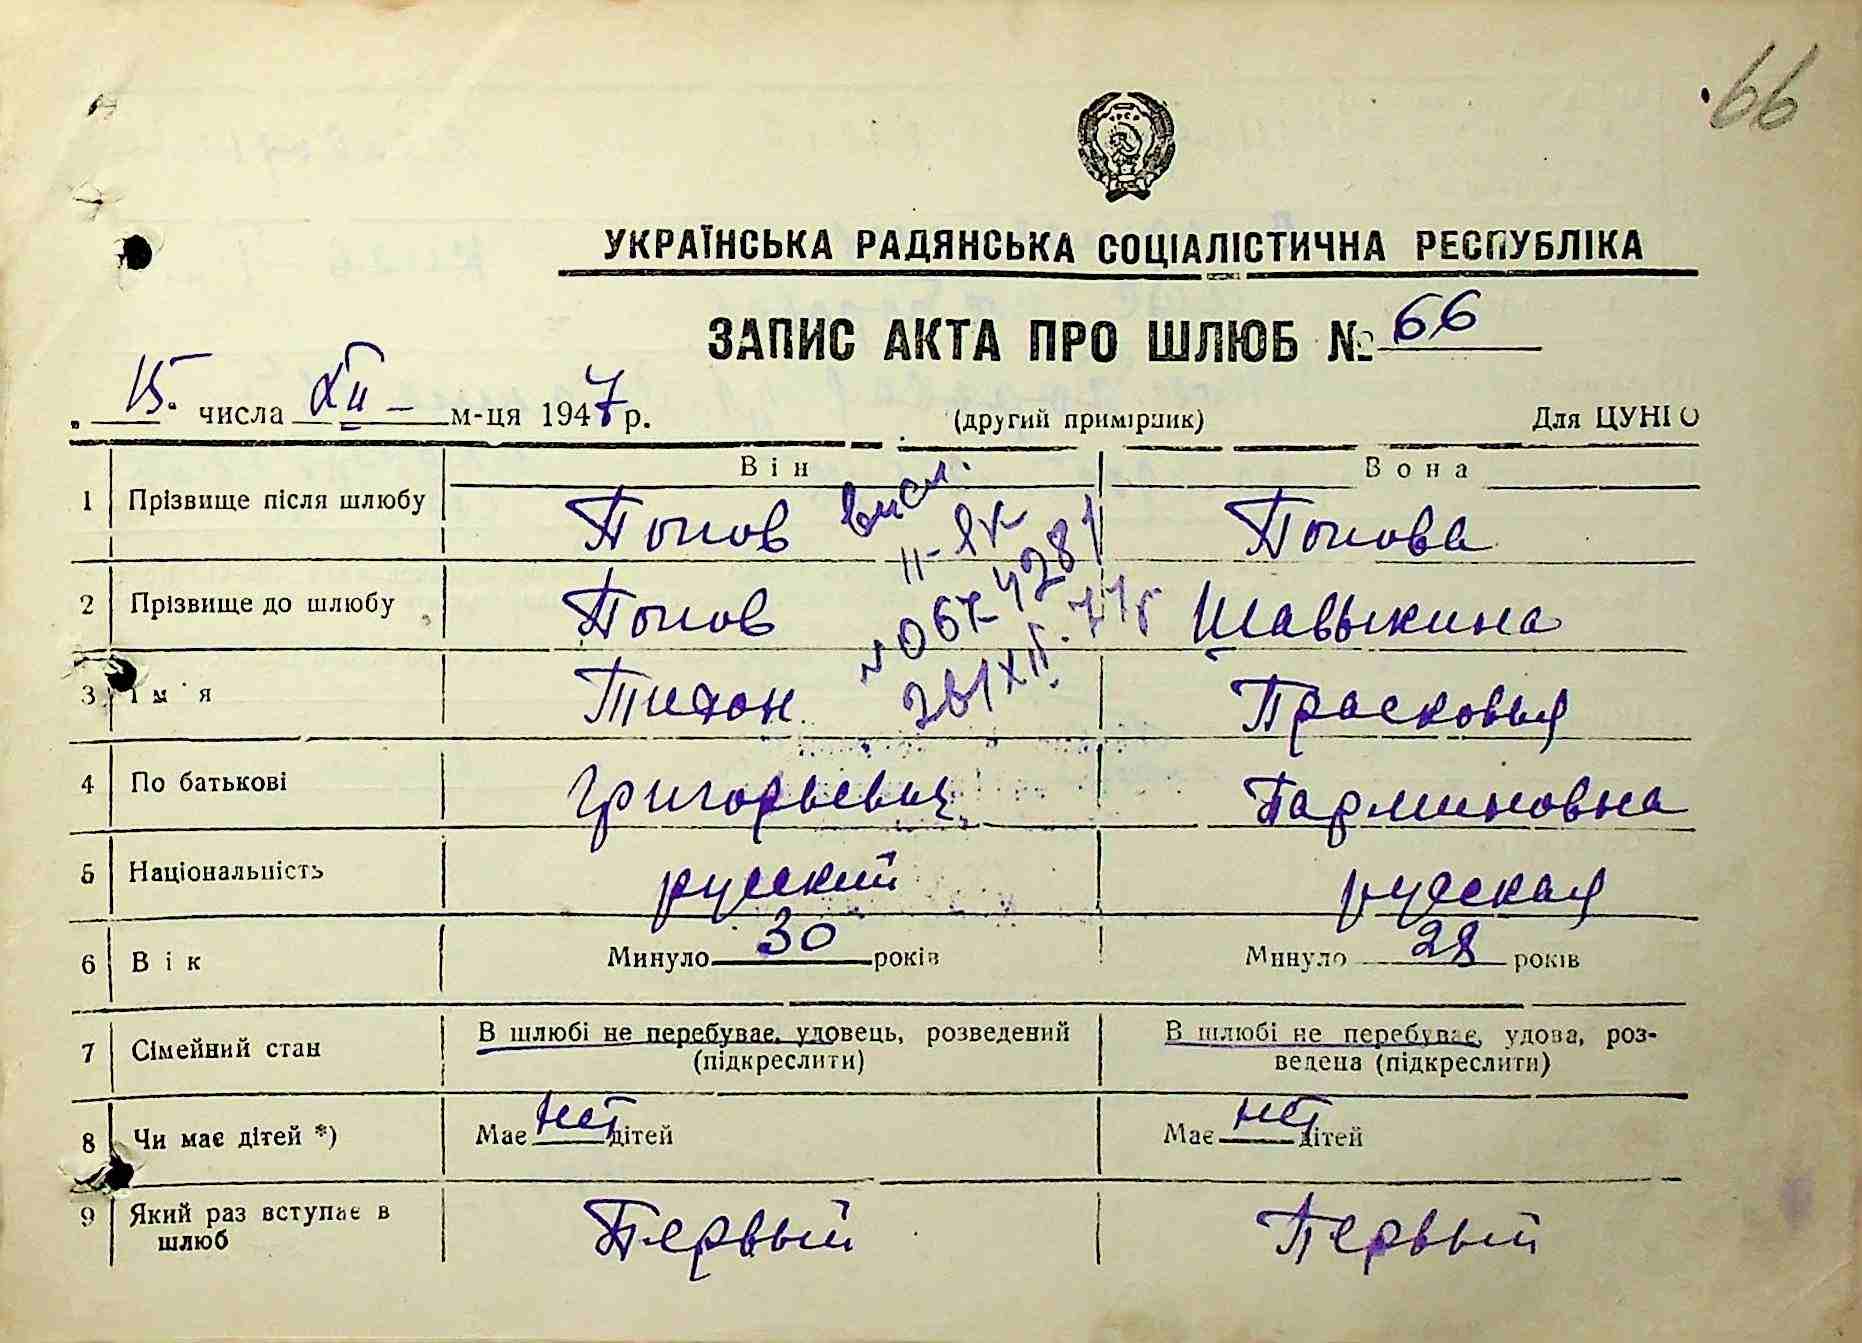 66
УРСР
УКРАЇНСЬКА РАДЯНСЬКА СОЦІАЛІСТИЧНА РЕСПУБЛІКА
ЗАПИС АКТА ПРО ШЛЮБ № 66
15. числа XII – м-ця 1947 р. (другий примірник) Для ЦУНГО
Він Вона
1 Прізвище після шлюбу Попов Попова
высл.
2 Прізвище до шлюбу Попов Шавыкина
3 Ім'я Тихон Прасковья
4 По батькові Григорьевич Парминовна
5 Національність русский русская
6 Вік Минуло 30 років Минуло 28 років
7 Сімейний стан В шлюбі не перебуває, удовець, розведений В шлюбі не перебуває, удова, роз-
(підкреслити) ведена (підкреслити)
8 Чи має дітей *) Має нет дітей Має нет дітей
9 Який раз вступає в Первый Первый
шлюб